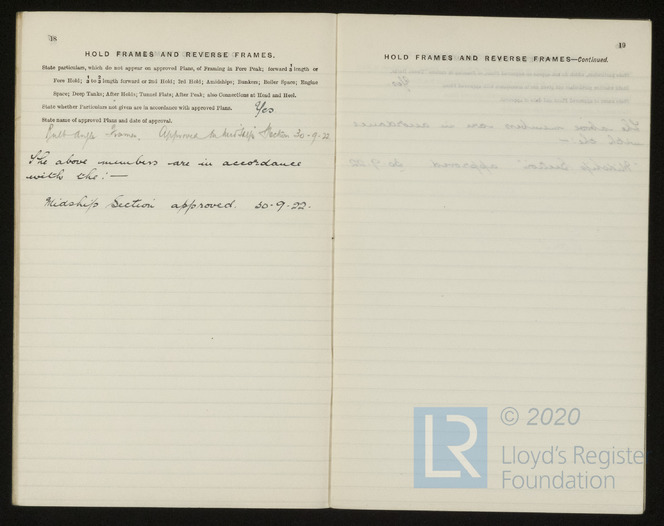 18
HOLD FRAMES AND REVERSE FRAMES.
State particulars, which do not appear on approved Plans, of Framing in Fore Peak; forward ⅕ length or
Fore Hold; ⅕ to ⅖ length forward or 2nd Hold; 3rd Hold; Amidships; Bunkers; Boiler Space; Engine
Space; Deep Tanks; After Holds; Tunnel Flats; After Peak; also Connections at Head and Heel.
State whether Particulars not given are in accordance with approved Plans. Yes
State name of approved Plans and date of approval.
Bulb Angle Frames. Approved Midship Section 30-9-22
The above members are in accordance
with the:—
Midship Section approved. 30-9-22.
19
HOLD FRAMES AND REVERSE FRAMES—Continued.
LR
© 2020
Lloyd's Register
Foundation